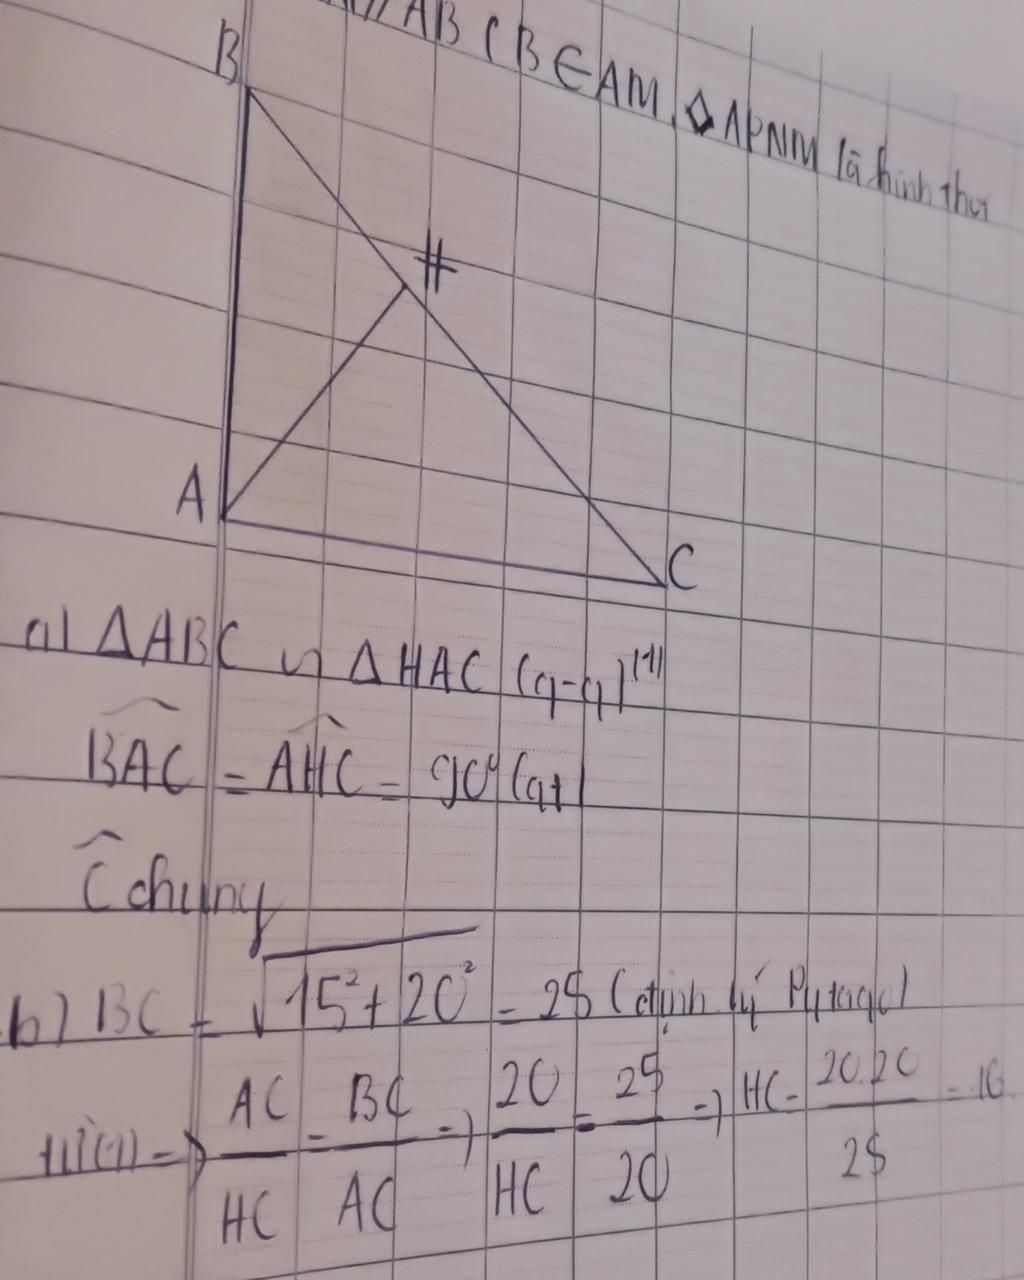 // AB ( B ∈ AM, ◇ APNM là hình thoi
B
H
A
C
a) ΔABC ∽ ΔHAC (g-g) (1)
BAC = AHC = 90° (gt)
C chung
b) BC = √15² + 20² = 25 (định lý Pytago)
Từ (1) => AC/HC = BC/AC => 20/HC = 25/20 => HC = 20.20/25 = 16